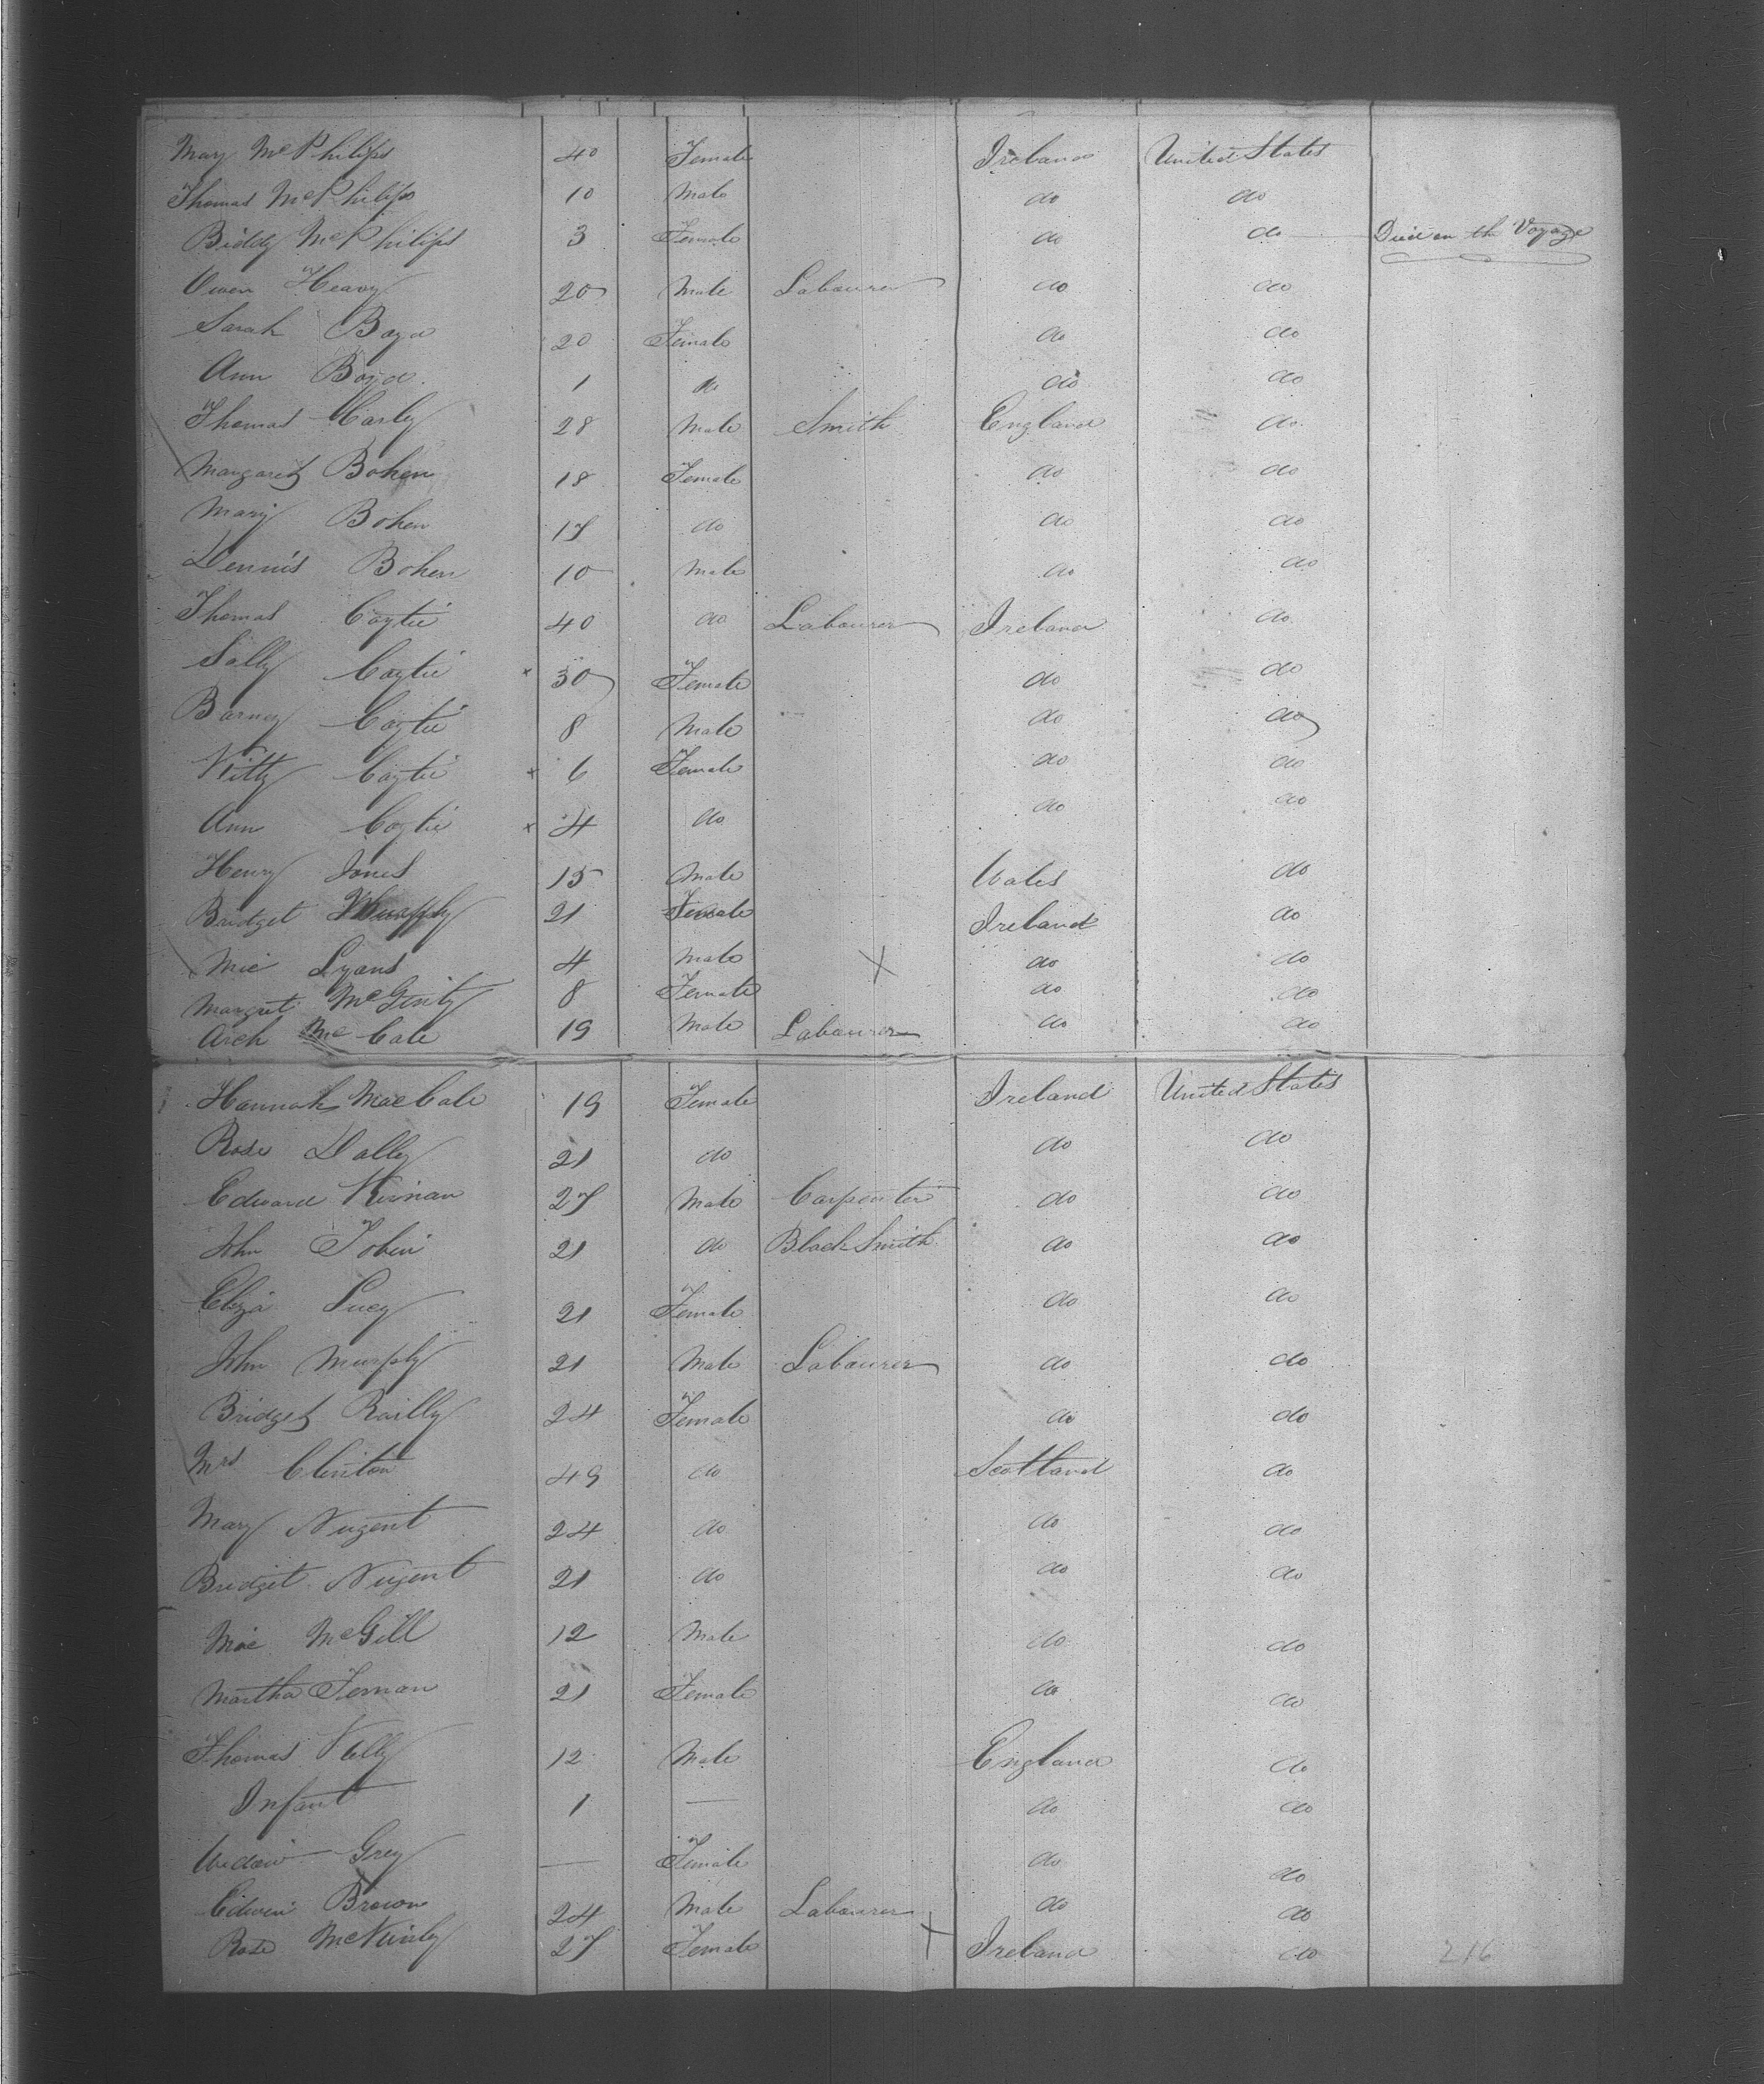 Mary McPhilips 40 Female Ireland United States
Thomas McPhilips 10 Male do do
Biddy McPhilips 3 Female do do Died on the Voyage
Owen Heavy 20 Male Labourer do do
Sarah Boyd 20 Female do do
Ann Boyd 1 do do do
Thomas Carley 28 Male Smith England do
Margaret Bohen 18 Female do do
Mary Bohen 17 do do do
Dennis Bohen 10 Male do do
Thomas Coytie 40 do Labourer Ireland do
Sally Coytie x 30 Female do do
Barney Coytie 8 Male do do
Kitty Coytie x 6 Female do do
Ann Coytie x 4 do do do
Henry Jones 15 Male Wales do
Bridget Murphy 21 Female Ireland do
Mic Lyans 4 Male X do do
Margret McGinty 8 Female do do
Arch McCale 19 Male Labourer do do
Hannah MacCale 19 Female Ireland United States
Rose Dalley 21 do do do
Edward Kirnan 27 Male Carpenter do do
John Tobin 21 do Black Smith do do
Eliza Lucy 21 Female do do
John Murphy 21 Male Labourer do do
Bridget Railly 24 Female do do
Mrs Clinton 49 do Scotland do
Mary Nugent 24 do do do
Bridget Nugent 21 do do do
Mic McGill 12 Male do do
Martha Ternan 21 Female do do
Thomas Kelly 12 Male England do
Infant 1 — do do
Widow Grey — Female do do
Edwin Brown 24 Male Labourer do do
Rose McKinley 27 Female X Ireland do 216